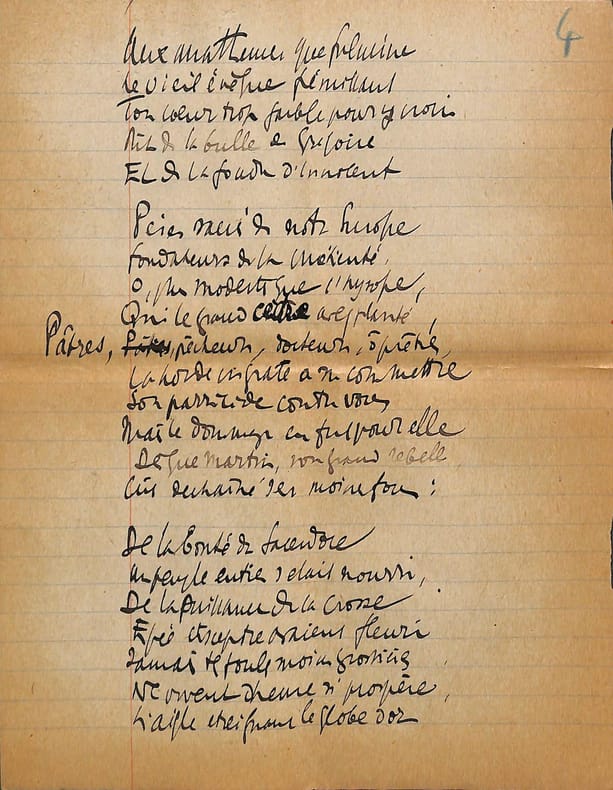 4
Aux anathèmes que fulmine
Le vieil évêque frémissant
Ton cœur trop faible pour y
Rit de la bulle de Grégoire
Et de la foudre d'Innocent
Pères sacrés de notre Europe
fondateurs de la chrétienté,
O, plus modestes que l'hysope,
Qui le grand cèdre avez planté,
Pâtres, pêcheurs, docteurs, ô prêtres,
La horde ingrate a su commettre
Son parricide contre vous
Mais le dommage en fut pour elle
Dès que Martin, son grand rebelle
Eût déchaîné ses moines fous :
De la Bonté du Sacerdoce
Un peuple entier s'était nourri,
De la Puissance de la Crosse
Épée et sceptre avaient fleuri
Jamais tes foules moins grossières
Ne virent d'heure si prospère,
L'aigle étreignant le globe d'or